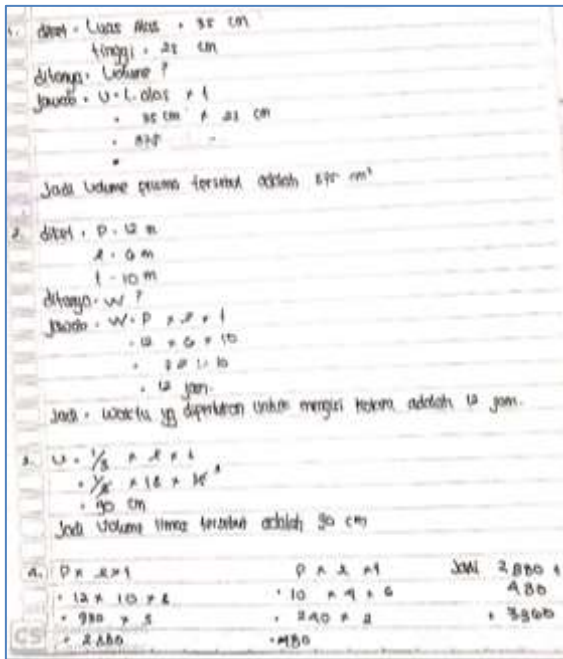 1. diket = Luas alas = 35 cm
tinggi = 25 cm
ditanya = Volume ?
Jawab = V = L. alas x t
= 35 cm x 25 cm
= 875
Jadi Volume prisma tersebut adalah 875 cm³
2. diket = P = 12 m
l = 6 m
t = 10 m
ditanya = W ?
Jawab = W = P x l x t
= 12 x 6 x 10
= 12 jam.
Jadi = Waktu yg diperlukan untuk mengisi kolam adalah 12 jam.
3. V = 1/3 x l x t
x 18 x 15
= 90 cm
Jadi Volume limas tersebut adalah 90 cm
4. P x l x t
= 12 x 10 x 8
= 2.880
P x l x t
= 10 x 4 x 6
= 240 x 2
= 480
Jadi 2.880 +
480
= 3360
CS